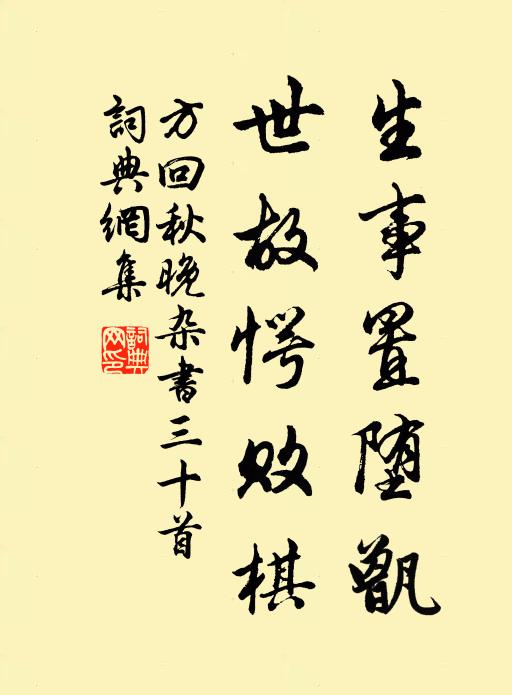 生事置堕甑
世故愕败棋
方回秋晚杂書三十首
詞典網集
詞典網印